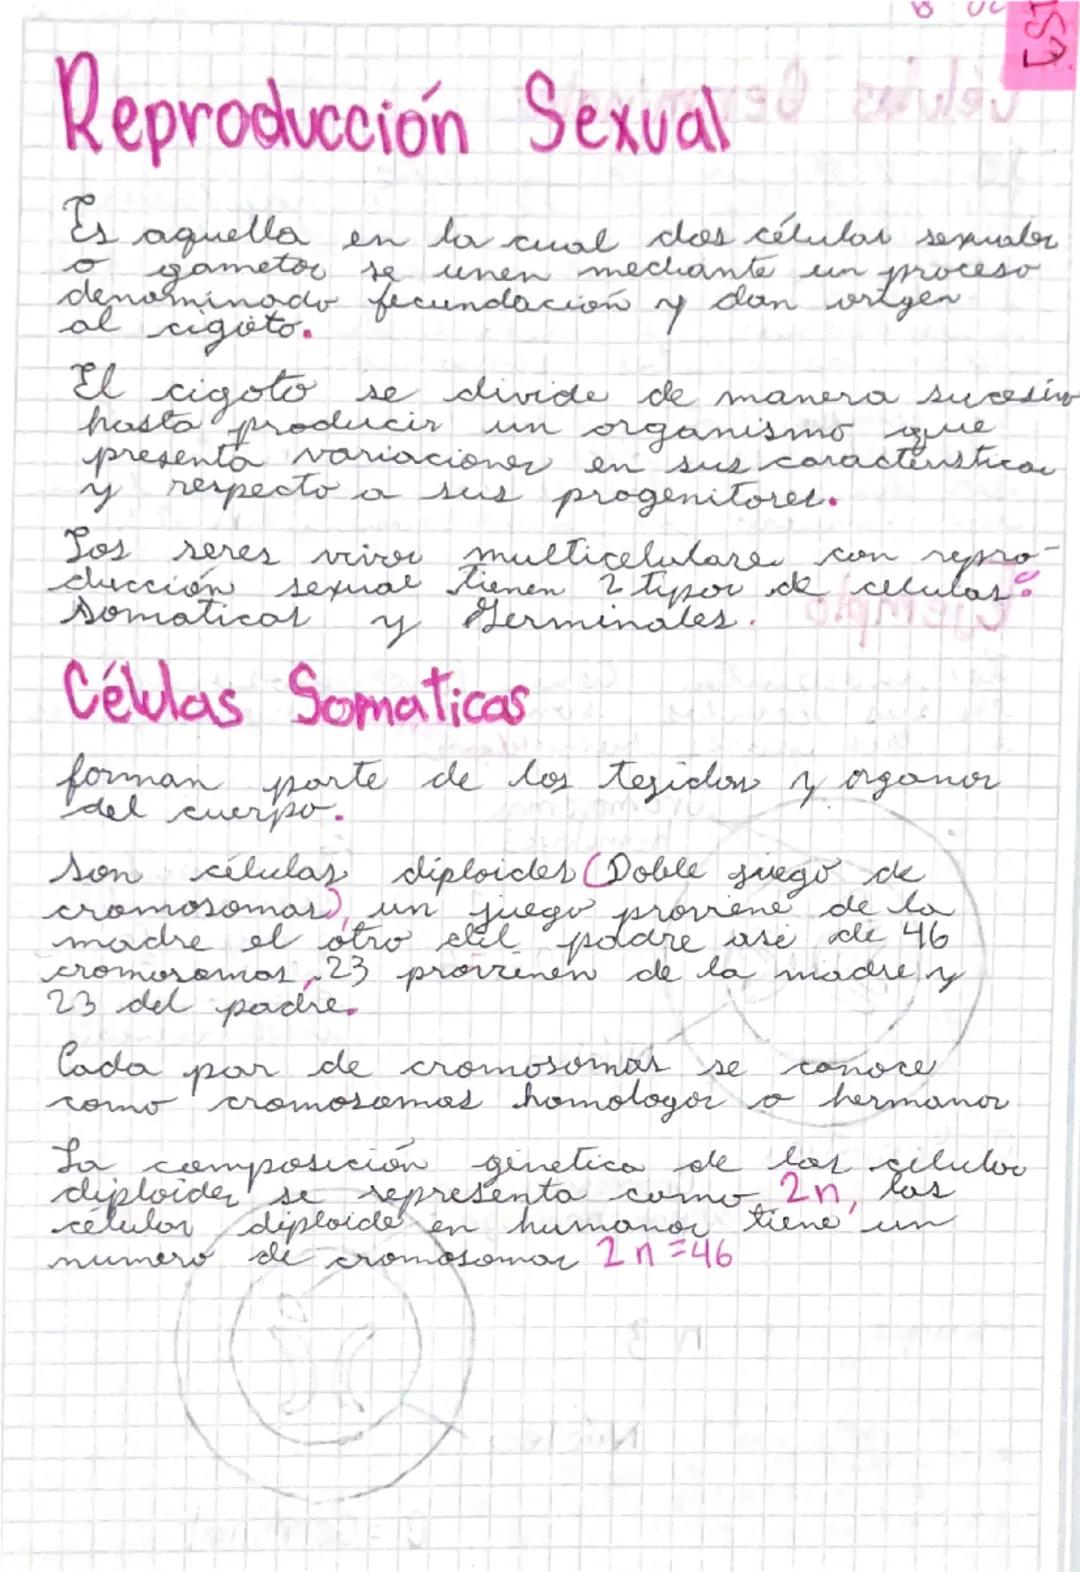 Reproducción Sexual
Es aquella en la cual dos células sexuales
o gametos se unen mediante un proceso
denominado fecundación y dan origen
al cigoto.
El cigoto se divide de manera sucesiva
hasta producir un organismo que
presenta variaciones en sus caracteristicas
y respecto a sus progenitores.
Los seres vivos multicelulares con repro-
ducción sexual tienen 2 tipos de celulas:
Somaticas y Germinales.
Células Somaticas
forman parte de los tegidos y organos
del cuerpo.
Son células diploides (Doble juego de
cromosomas), un juego proviene de la
madre el otro del padre asi de 46
cromosomas, 23 provienen de la madre y
23 del padre.
Cada par de cromosomas se conoce
como cromosomas homologos o hermanos
La composición genetica de las celulas
diploides se representa como 2n, las
células diploide en humanos tiene un
numero de cromosomas 2n=46